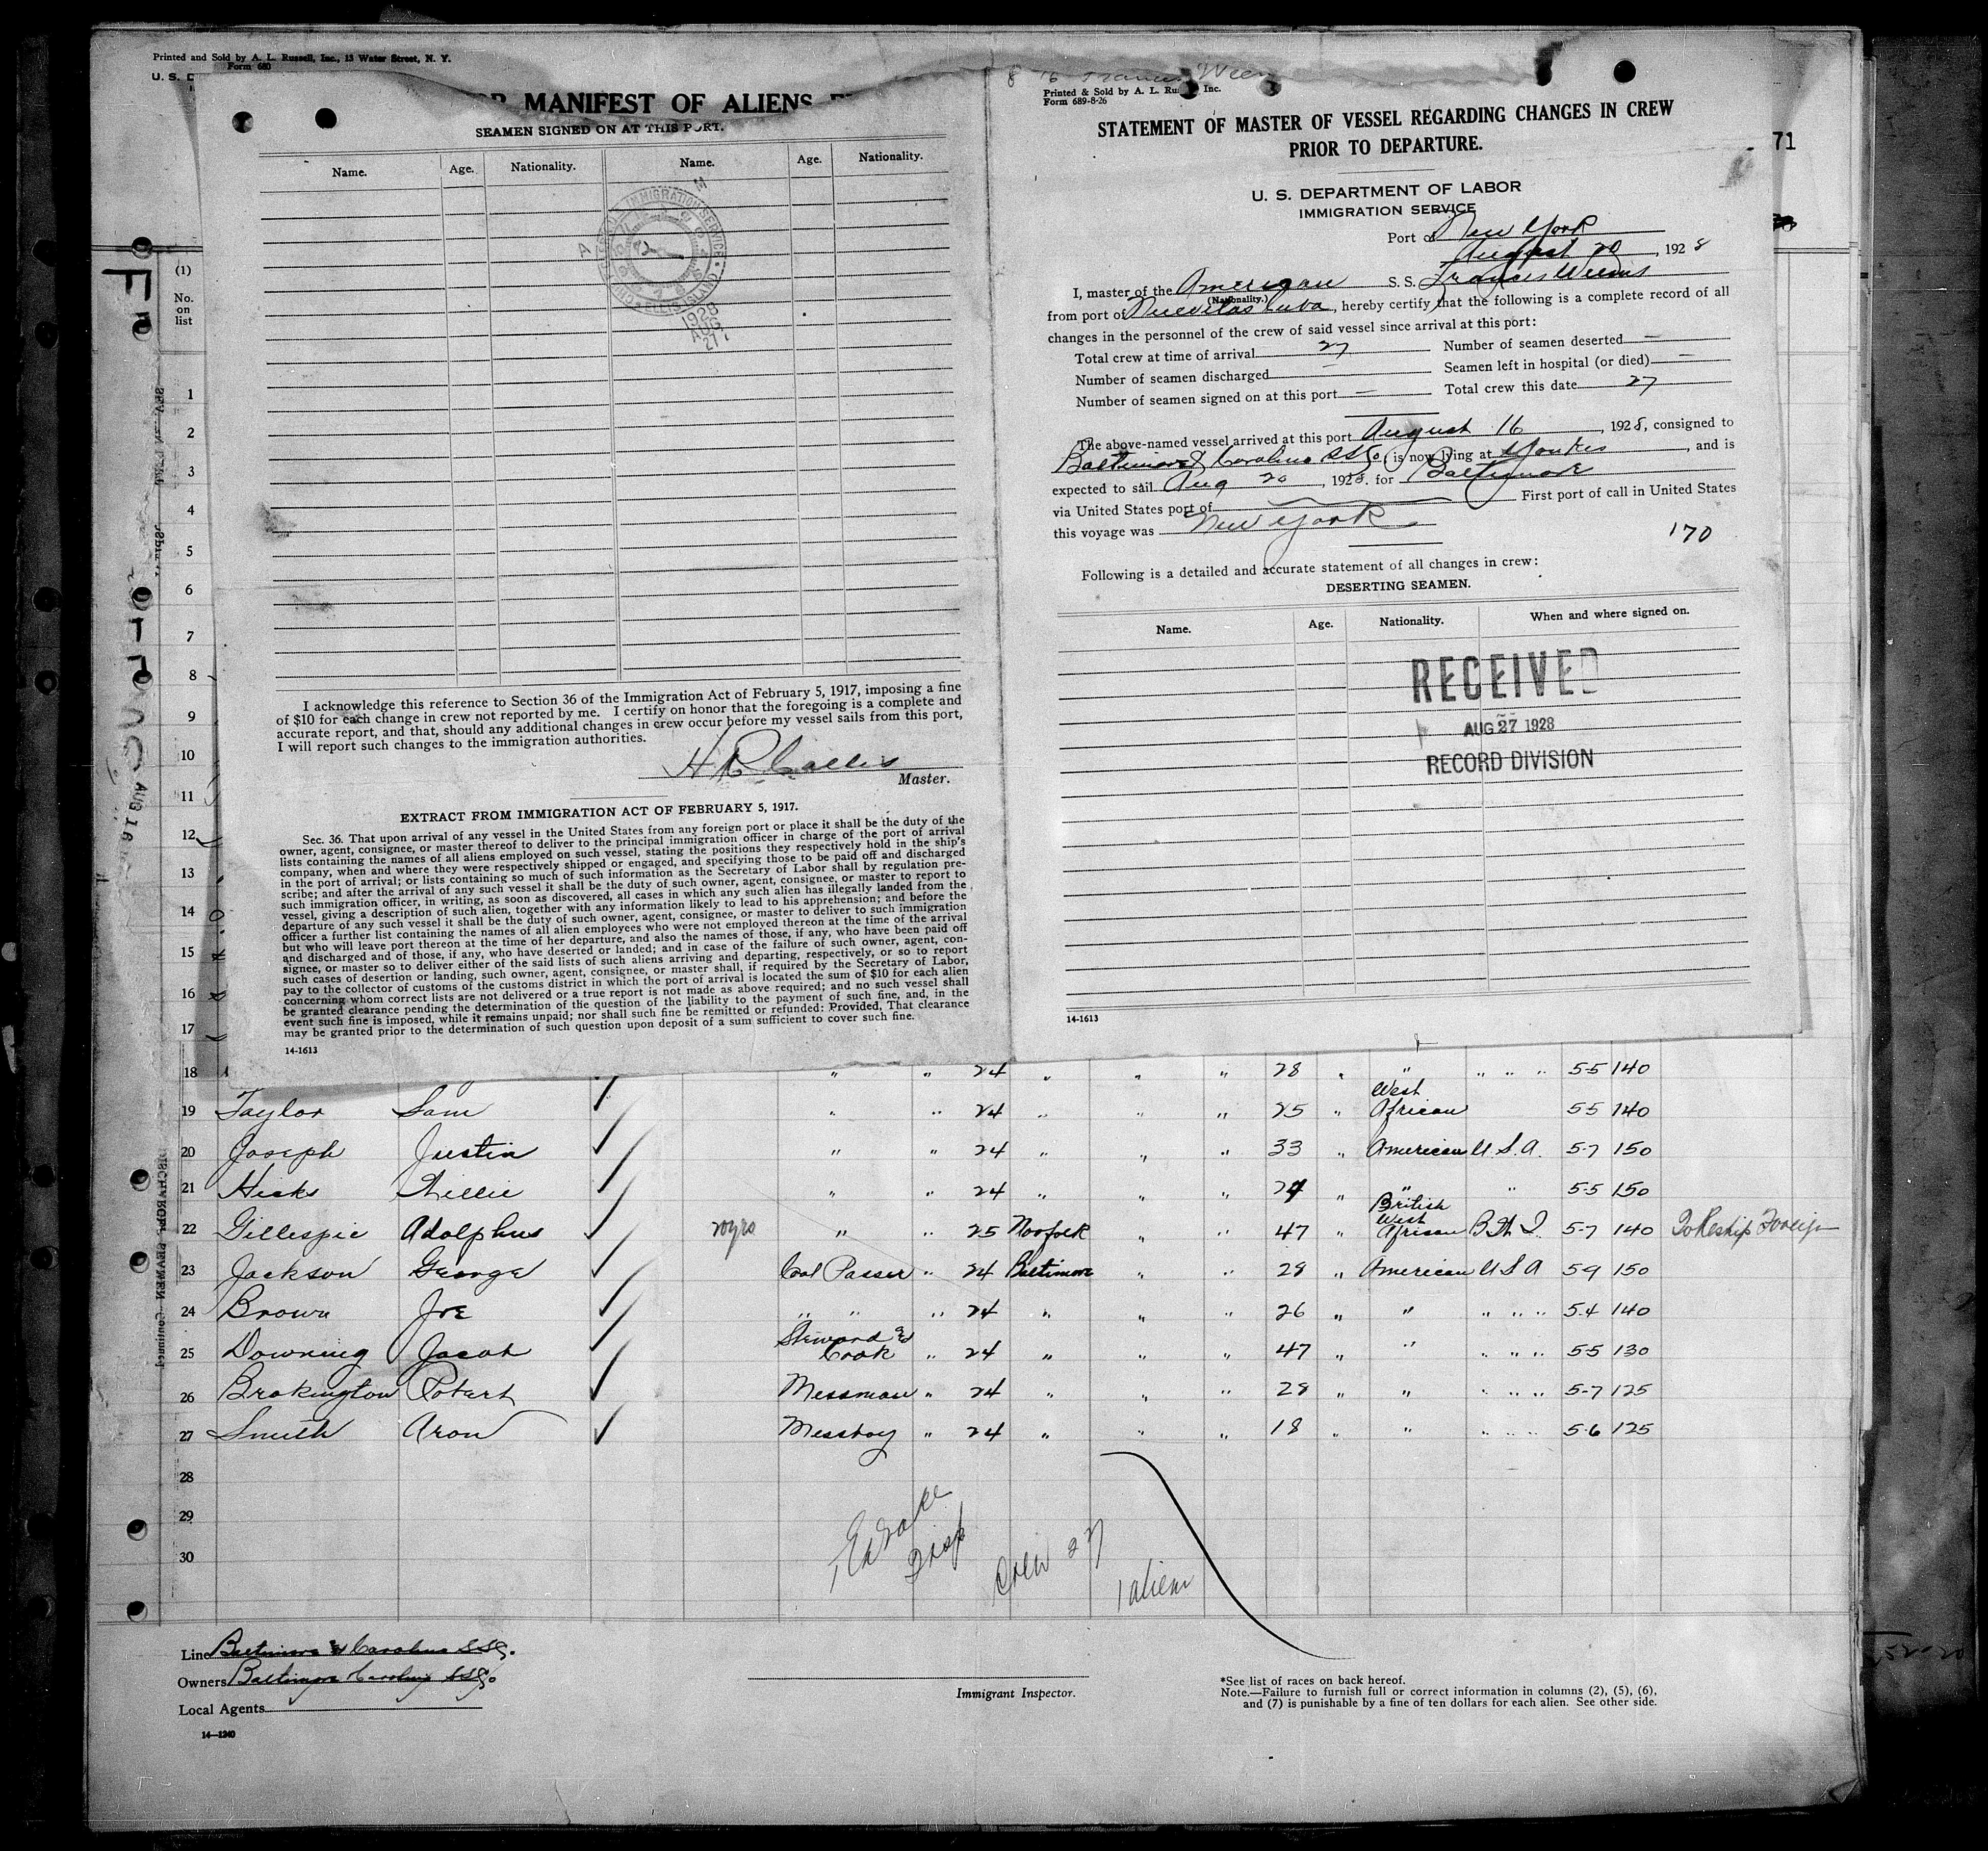 Printed and Sold by A. L. Russell, Inc., 13 Water Street, N. Y.
Form 680
U. S. D
MANIFEST OF ALIENS
SEAMEN SIGNED ON AT THIS PORT.
Name. Age. Nationality. Name. Age. Nationality.
IMMIGRATION SERVICE
ELLIS ISLAND
1928
AUG
21
I acknowledge this reference to Section 36 of the Immigration Act of February 5, 1917, imposing a fine
of $10 for each change in crew not reported by me. I certify on honor that the foregoing is a complete and
accurate report, and that, should any additional changes in crew occur before my vessel sails from this port,
I will report such changes to the immigration authorities.
Master.
EXTRACT FROM IMMIGRATION ACT OF FEBRUARY 5, 1917.
Sec. 36. That upon arrival of any vessel in the United States from any foreign port or place it shall be the duty of the
owner, agent, consignee, or master thereof to deliver to the principal immigration officer in charge of the port of arrival
lists containing the names of all aliens employed on such vessel, stating the positions they respectively hold in the ship's
company, when and where they were respectively shipped or engaged, and specifying those to be paid off and discharged
in the port of arrival; or lists containing so much of such information as the Secretary of Labor shall by regulation pre-
scribe; and after the arrival of any such vessel it shall be the duty of such owner, agent, consignee, or master to report to
such immigration officer, in writing, as soon as discovered, all cases in which any such alien has illegally landed from the
vessel, giving a description of such alien, together with any information likely to lead to his apprehension; and before the
departure of any such vessel it shall be the duty of such owner, agent, consignee, or master to deliver to such immigration
officer a further list containing the names of all alien employees who were not employed thereon at the time of the arrival
but who will leave port thereon at the time of her departure, and also the names of those, if any, who have been paid off
and discharged and of those, if any, who have deserted or landed; and in case of the failure of such owner, agent, con-
signee, or master so to deliver either of the said lists of such aliens arriving and departing, respectively, or so to report
such cases of desertion or landing, such owner, agent, consignee, or master shall, if required by the Secretary of Labor,
pay to the collector of customs of the customs district in which the port of arrival is located the sum of $10 for each alien
concerning whom correct lists are not delivered or a true report is not made as above required; and no such vessel shall
be granted clearance pending the determination of the question of the liability to the payment of such fine, and, in the
event such fine is imposed, while it remains unpaid; nor shall such fine be remitted or refunded: Provided, That clearance
may be granted prior to the determination of such question upon deposit of a sum sufficient to cover such fine.
14-1613
Printed & Sold by A. L. Inc.
Form 689-8-26
STATEMENT OF MASTER OF VESSEL REGARDING CHANGES IN CREW
PRIOR TO DEPARTURE.
71
U. S. DEPARTMENT OF LABOR
IMMIGRATION SERVICE
Port of New York
August 20, 1928
I, master of the American S. S. Francis Weems
(Nationality.)
from port of Nuevitas Cuba, hereby certify that the following is a complete record of all
changes in the personnel of the crew of said vessel since arrival at this port:
Total crew at time of arrival 27 Number of seamen deserted —
Number of seamen discharged — Seamen left in hospital (or died) —
Number of seamen signed on at this port — Total crew this date 27
The above-named vessel arrived at this port August 16, 1928, consigned to
Baltimore & Carolina SS Co, is now lying at Yonkers, and is
expected to sail Aug 20, 1928. for Baltimore
via United States port of First port of call in United States
this voyage was New York
170
Following is a detailed and accurate statement of all changes in crew:
DESERTING SEAMEN.
Name. Age. Nationality. When and where signed on.
RECEIVED
AUG 27 1928
RECORD DIVISION
14-1613
(1)
No.
on
list
1
2
3
4
5
6
7
8
9
10
11
12
13
14
15
16
17
AUG 16
18 " " 24 " " " 28 " " " " " 5-5 140
19 Taylor Sam " " 24 " " " 25 " West African 5-5 140
20 Joseph Justin " " 24 " " " 33 " American U.S.A. 5-7 150
21 Hicks Willie " " 24 " " " 24 " " " 5-5 150
22 Gillespie Adolphus 20yrs " " 25 Norfolk " " 47 " British West African B.W.I. 5-7 140 To Reship Foreign
23 Jackson George Coal Passer " 24 Baltimore " " 28 " American U S A 5-9 150
24 Brown Joe " " " 24 " " " 26 " " " " " 5-4 140
25 Downing Jacob Steward & Cook " 24 " " " 47 " " " " " 5-5 130
26 Brokington Robert Messman " 24 " " " 28 " " " " " 5-7 125
27 Smith Aron Messboy " 24 " " " 18 " " " " " 5-6 125
28
29
30
Crew 27
1 alien
Line Baltimore & Carolina S.S Co.
Owners Baltimore Carolina S.S Co
Local Agents
Immigrant Inspector.
*See list of races on back hereof.
Note.—Failure to furnish full or correct information in columns (2), (5), (6),
and (7) is punishable by a fine of ten dollars for each alien. See other side.
14—1240